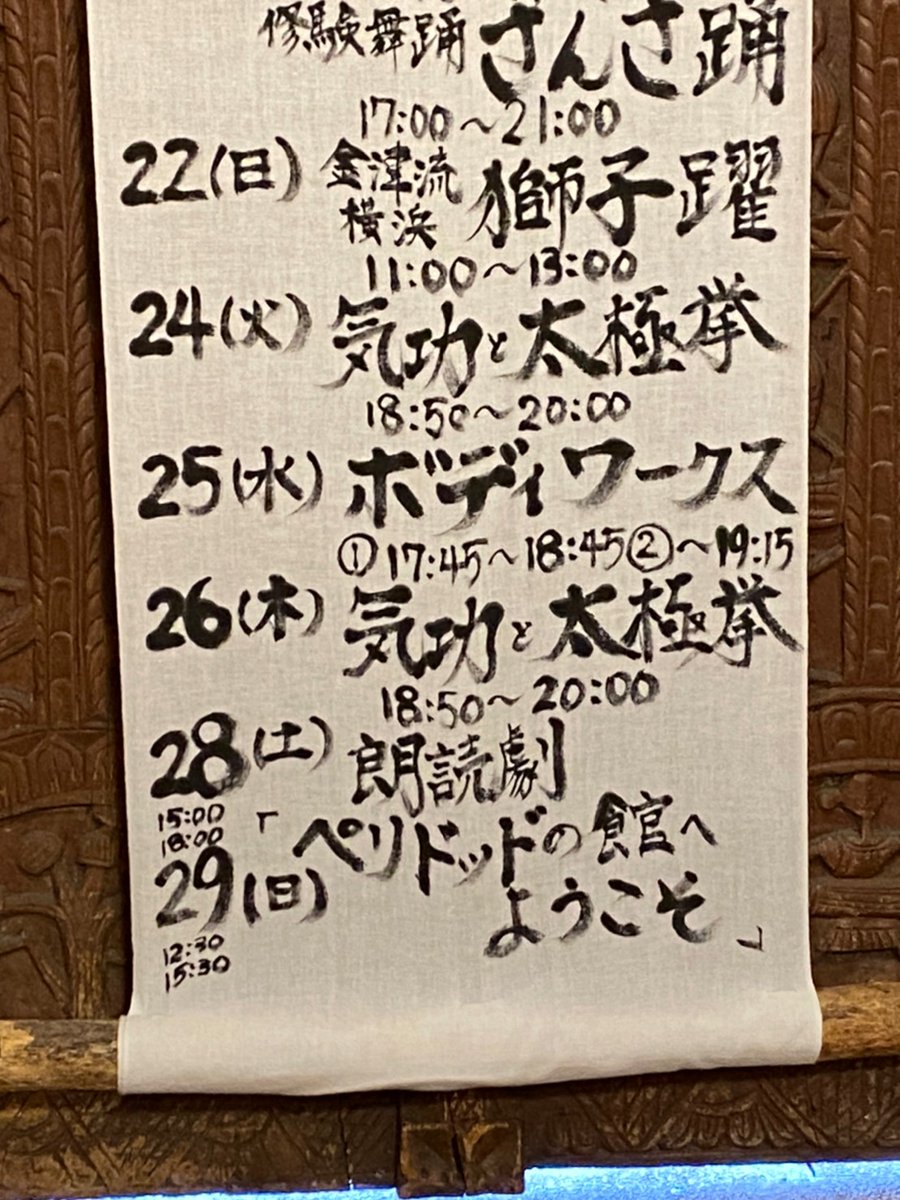 修験舞踊 さんさ踊
17:00～21:00
22(日) 金津流横浜 獅子躍
11:00～13:00
24(火) 気功と太極拳
18:50～20:00
25(水) ボディワークス
① 17:45～18:45 ② ～19:15
26(木) 気功と太極拳
18:50～20:00
28(土) 朗読劇
15:00
18:00
「ペリドッドの館へ
29(日) ようこそ」
12:30
15:30